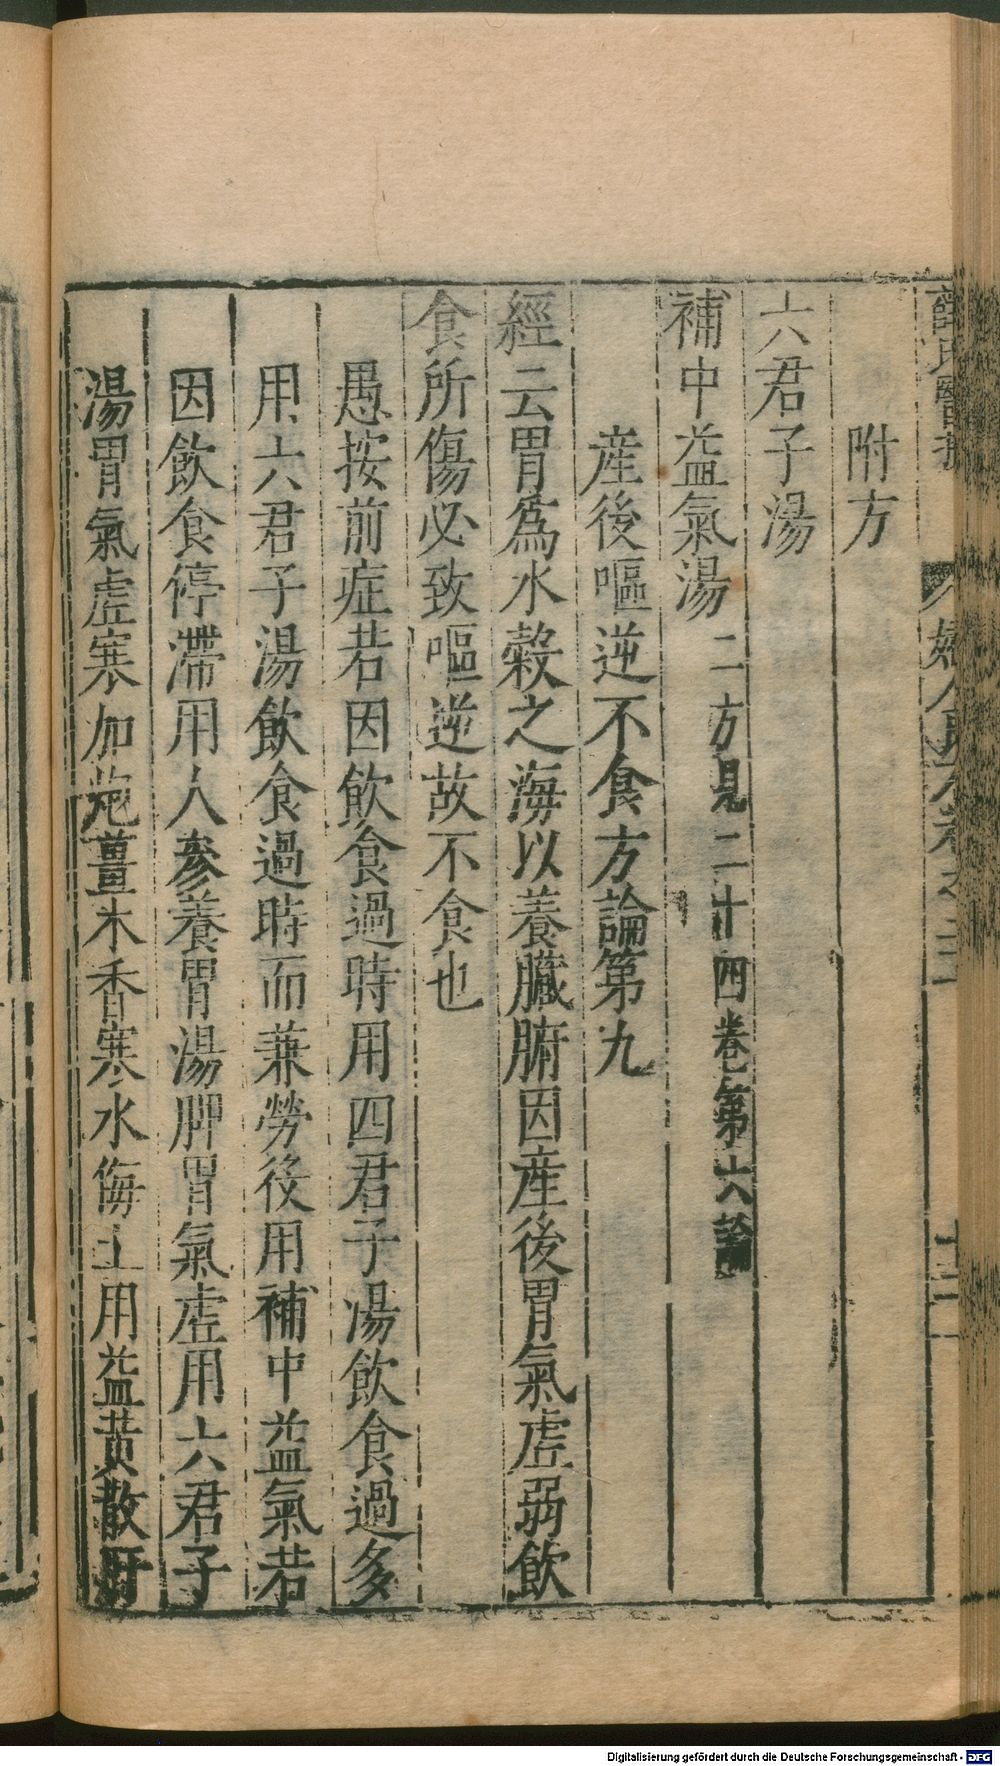 薛氏醫按
婦人良方卷之二
附方
六君子湯
補中益氣湯二方見二十四卷第六論
産後嘔逆不食方論第九
經云胃爲水穀之海以養臟腑因産後胃氣虛弱飲
食所傷必致嘔逆故不食也
愚按前症若因飲食過時用四君子湯飲食過多
用六君子湯飲食過時而兼勞役用補中益氣若
因飲食停滯用人參養胃湯脾胃氣虛用六君子
湯胃氣虛寒加炮薑木香寒水侮土用益黃散肝
Digitalisierung gefördert durch die Deutsche Forschungsgemeinschaft - DFG